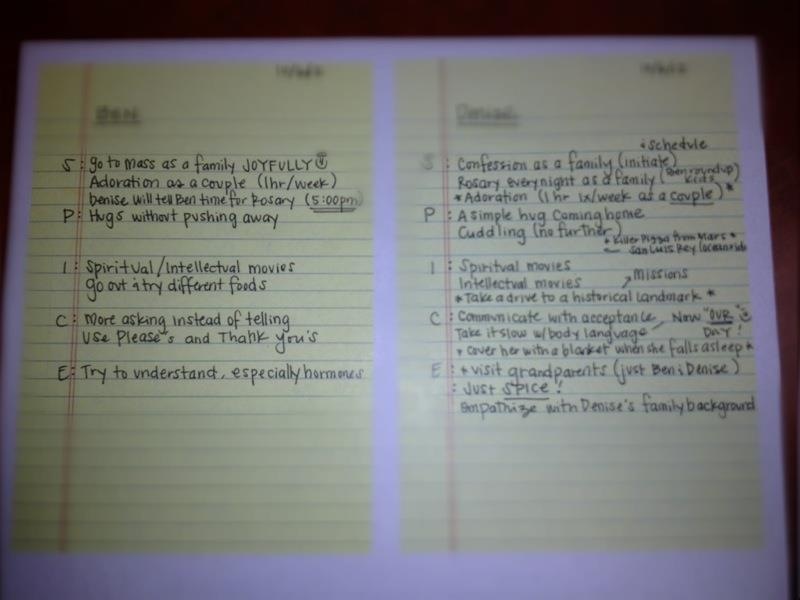 BEN
S: go to Mass as a family JOYFULLY
Adoration as a couple (1hr/week)
Denise will tell Ben time for Rosary (5:00pm)
P: Hugs without pushing away
I: Spiritual/Intellectual movies
go out & try different foods
C: More asking instead of telling
Use Please's and Thank you's
E: Try to understand, especially hormones
Denise
schedule
S: Confession as a family (initiate)
Rosary every night as a family (Ben roundup kids)
*Adoration (1 hr 1x/week as a couple)*
P: A simple hug coming home
Cuddling (no further)
*Killer Pizza from Mars*
San Luis Rey (oceanside
I: Spiritual movies
Intellectual movies
Missions
*Take a drive to a historical landmark*
C: Communicate with acceptance, Now "OUR"
Take it slow w/body language DAY!
*cover her with a blanket when she falls asleep*
E: *visit grandparents (just Ben & Denise)
: Just SPICE!
Empathize with Denise's family background